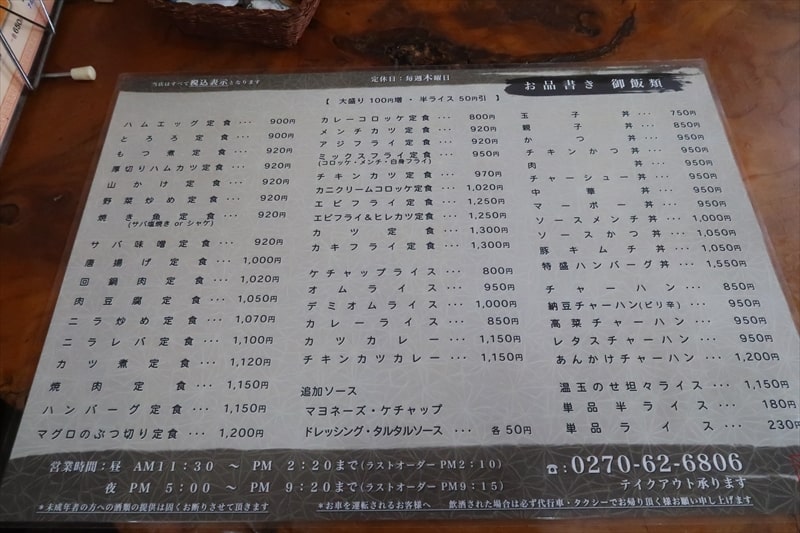 650
当店はすべて税込表示となります
定休日：毎週木曜日
お品書き 御飯類
【 大盛り 100円増 ・ 半ライス 50円引 】
ハムエッグ定食 ･･･ 900円
とろろ定食 ･･･ 900円
もつ煮定食 ･･･ 920円
厚切りハムカツ定食 ･･･ 920円
山かけ定食 ･･･ 920円
野菜炒め定食 ･･･ 920円
焼き魚定食 ･･･ 920円
(サバ塩焼き or シャケ)
サバ味噌定食 ･･･ 920円
唐揚げ定食 ･･･ 1,000円
回鍋肉定食 ･･･ 1,020円
肉豆腐定食 ･･･ 1,050円
ニラ炒め定食 ･･･ 1,070円
ニラレバ定食 ･･･ 1,100円
カツ煮定食 ･･･ 1,120円
焼肉定食 ･･･ 1,150円
ハンバーグ定食 ･･･ 1,150円
マグロのぶつ切り定食 ･･･ 1,200円
カレーコロッケ定食 ･･･ 800円
メンチカツ定食 ･･･ 920円
アジフライ定食 ･･･ 920円
ミックスフライ定食 ･･･ 950円
(コロッケ・メンチ・白身フライ)
チキンカツ定食 ･･･ 970円
カニクリームコロッケ定食 ･･･ 1,020円
エビフライ定食 ･･･ 1,250円
エビフライ&ヒレカツ定食 ･･･ 1,250円
カツ定食 ･･･ 1,300円
カキフライ定食 ･･･ 1,300円
ケチャップライス ･･･ 800円
オムライス ･･･ 950円
デミオムライス ･･･ 1,000円
カレーライス ･･･ 850円
カツカレー ･･･ 1,150円
チキンカツカレー ･･･ 1,150円
追加ソース
マヨネーズ・ケチャップ
ドレッシング・タルタルソース ･･･ 各50円
玉子丼 ･･･ 750円
親子丼 ･･･ 850円
かつ丼 ･･･ 950円
チキンかつ丼 ･･･ 950円
肉丼 ･･･ 950円
チャーシュー丼 ･･･ 950円
中華丼 ･･･ 950円
マーボー丼 ･･･ 950円
ソースメンチ丼 ･･･ 1,000円
ソースかつ丼 ･･･ 1,050円
豚キムチ丼 ･･･ 1,050円
特盛ハンバーグ丼 ･･･ 1,550円
チャーハン ･･･ 850円
納豆チャーハン(ピリ辛) ･･･ 950円
高菜チャーハン ･･･ 950円
レタスチャーハン ･･･ 950円
あんかけチャーハン ･･･ 1,200円
温玉のせ坦々ライス ･･･ 1,150円
単品半ライス ･･･ 180円
単品ライス ･･･ 230円
営業時間：昼 AM11：30 ～ PM 2：20まで(ラストオーダー PM2：10)
夜 PM 5：00 ～ PM 9：20まで(ラストオーダー PM9：15)
☎:0270-62-6806
テイクアウト承ります
*未成年者の方への酒類の提供は固くお断りさせて頂きます
*お車を運転されるお客様へ 飲酒された場合は必ず代行車・タクシーでお帰り頂く様お願い申し上げます